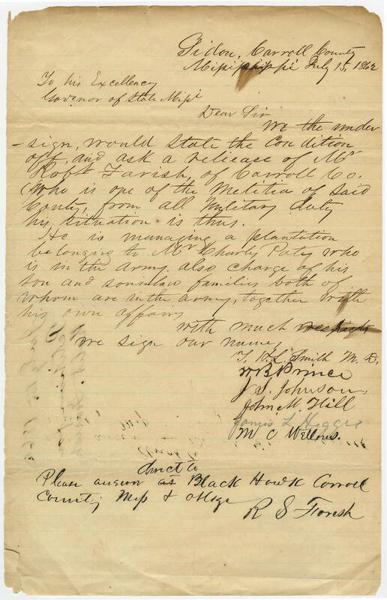 Sidon, Carroll County
Mississippi July 15, 1862
To his Excellency
Governor of State Miss
Dear Sir
We the under
-sign, would State the Condition
off, and ask a release of Mr
Robt Farish, of Carroll Co.
Who is one of the Melitia of Said
County, from all Military duty
his Situation is thus.
He is managing a plantation
belonging to Mr Charly Pate, who
is in the Army, also charge of his
son and soninlaw families both of
whom are in the army, together with
his own affairs
with much
We sign our names
Smith M. D.
W B Prince
J. S. Johnson
John M. Hill
James
M. C
direct to
Please answer at Black Hawk Carroll
County Miss &
R S Farish